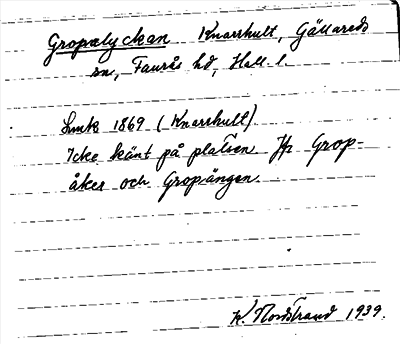 Gropalyckan Knarrhult, Gällareds
sn, Faurås hd, Hall. l.
Lmtk 1869 (Knarrhult)
Icke känt på platsen. Jfr Grop-
åker och Gropängen.
K. Nordstrand 1939.